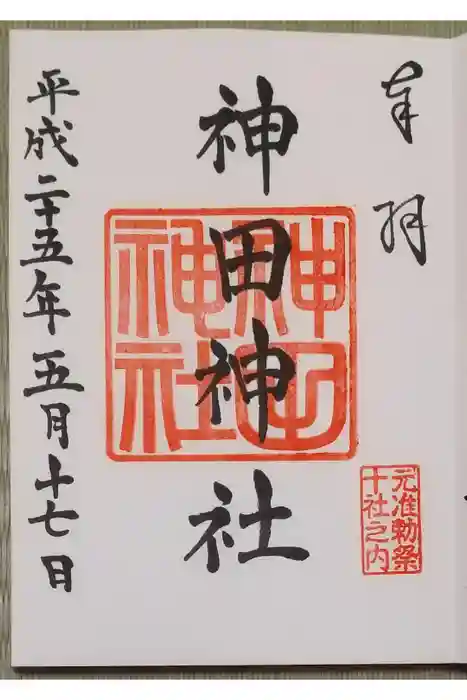 奉拝
神田神社
神
神社
元准勅祭
十社之内
平成二十五年五月十七日